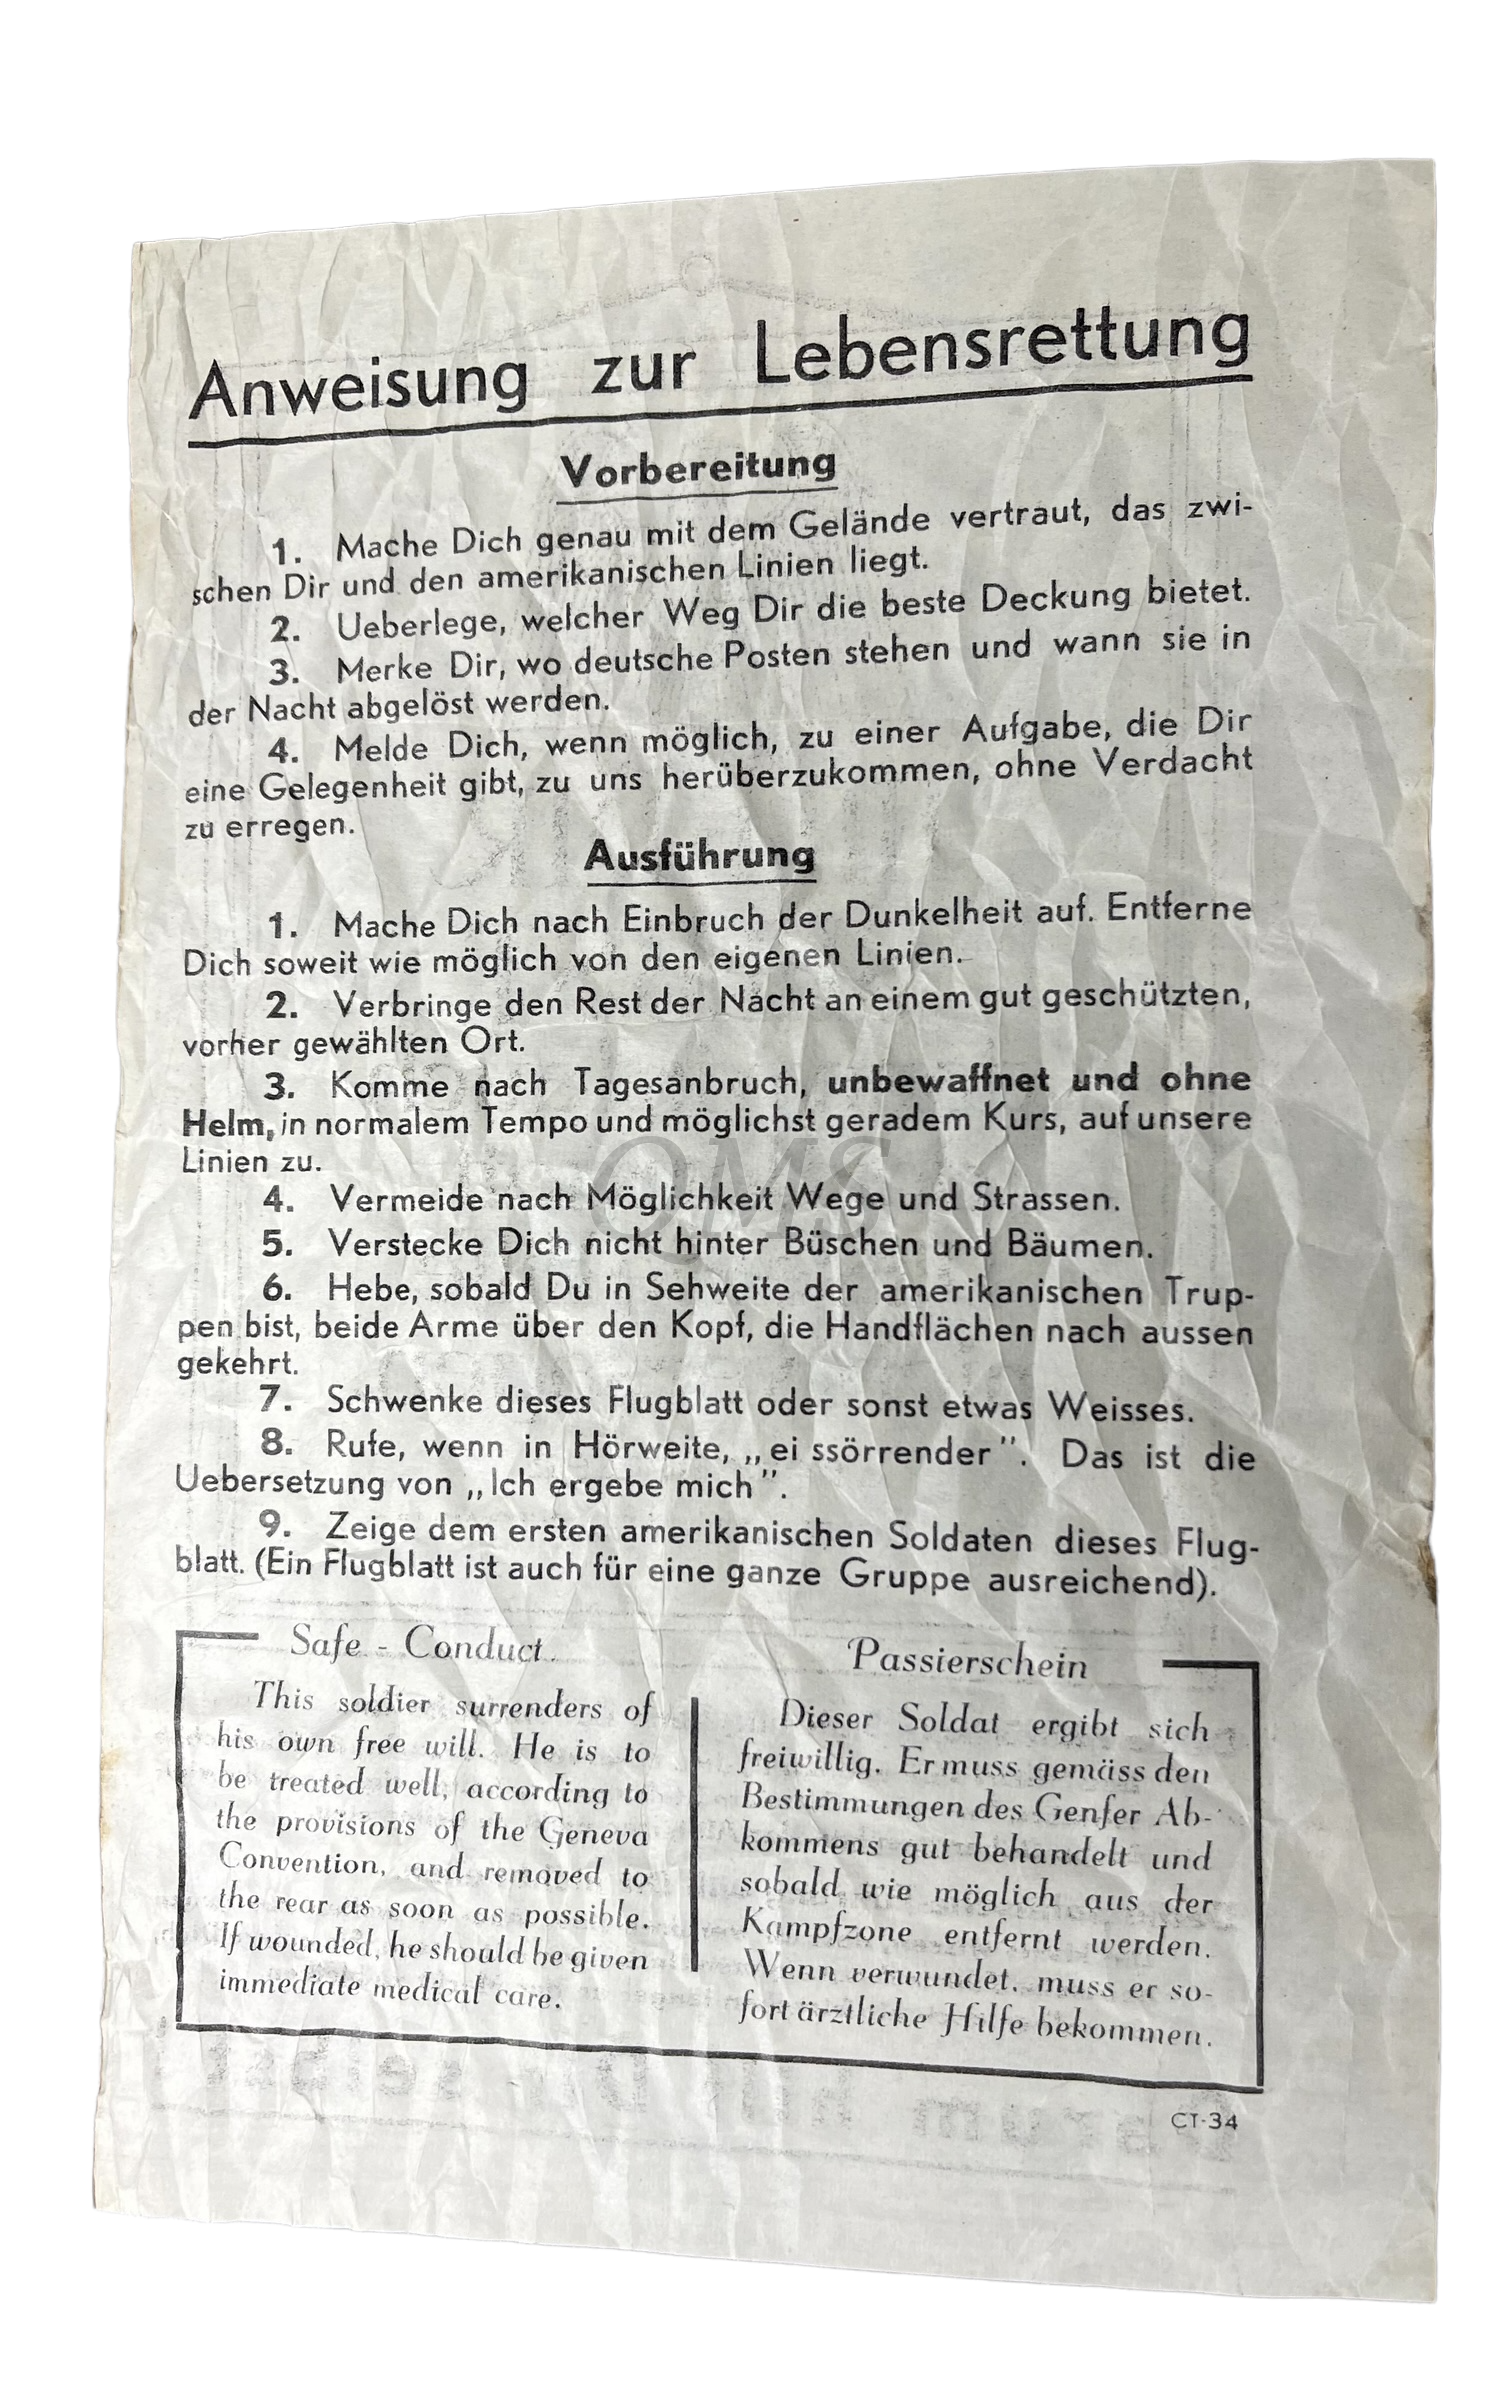 Anweisung zur Lebensrettung
Vorbereitung
1. Mache Dich genau mit dem Gelände vertraut, das zwi-
schen Dir und den amerikanischen Linien liegt.
2. Ueberlege, welcher Weg Dir die beste Deckung bietet.
3. Merke Dir, wo deutsche Posten stehen und wann sie in
der Nacht abgelöst werden.
4. Melde Dich, wenn möglich, zu einer Aufgabe, die Dir
eine Gelegenheit gibt, zu uns herüberzukommen, ohne Verdacht
zu erregen.
Ausführung
1. Mache Dich nach Einbruch der Dunkelheit auf. Entferne
Dich soweit wie möglich von den eigenen Linien.
2. Verbringe den Rest der Nacht an einem gut geschützten,
vorher gewählten Ort.
3. Komme nach Tagesanbruch, unbewaffnet und ohne
Helm, in normalem Tempo und möglichst geradem Kurs, auf unsere
Linien zu.
QMS
4. Vermeide nach Möglichkeit Wege und Strassen.
5. Verstecke Dich nicht hinter Büschen und Bäumen.
6. Hebe, sobald Du in Sehweite der amerikanischen Trup-
pen bist, beide Arme über den Kopf, die Handflächen nach aussen
gekehrt.
7. Schwenke dieses Flugblatt oder sonst etwas Weisses.
8. Rufe, wenn in Hörweite, „ei ssörrender”. Das ist die
Uebersetzung von „Ich ergebe mich”.
9. Zeige dem ersten amerikanischen Soldaten dieses Flug-
blatt. (Ein Flugblatt ist auch für eine ganze Gruppe ausreichend).
Safe - Conduct
This soldier surrenders of
his own free will. He is to
be treated well, according to
the provisions of the Geneva
Convention, and removed to
the rear as soon as possible.
If wounded, he should be given
immediate medical care.
Passierschein
Dieser Soldat ergibt sich
freiwillig. Er muss gemäss den
Bestimmungen des Genfer Ab-
kommens gut behandelt und
sobald wie möglich aus der
Kampfzone entfernt werden.
Wenn verwundet, muss er so-
fort ärztliche Hilfe bekommen.
CT-34